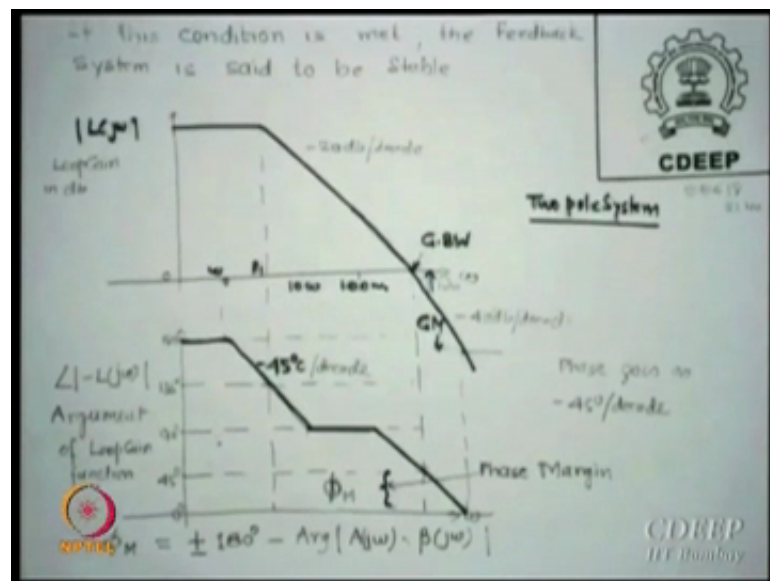 if this condition is met, the Feedback
System is said to be Stable
CDEEP
|L(jω)|
Loop Gain
in db
-20db/decade
Two pole System
G.BW
0
ω
P1
10ω
100ω
GM
-40db/decade
∠|-L(jω)|
Argument
of Loop Gain
function
-45°c/decade
Phase goes as
-45°/decade
90°
45°
0°
ΦM
Phase Margin
NPTEL
M = ± 180° - Arg| A(jω) · β(jω) |
CDEEP
IIT Bombay